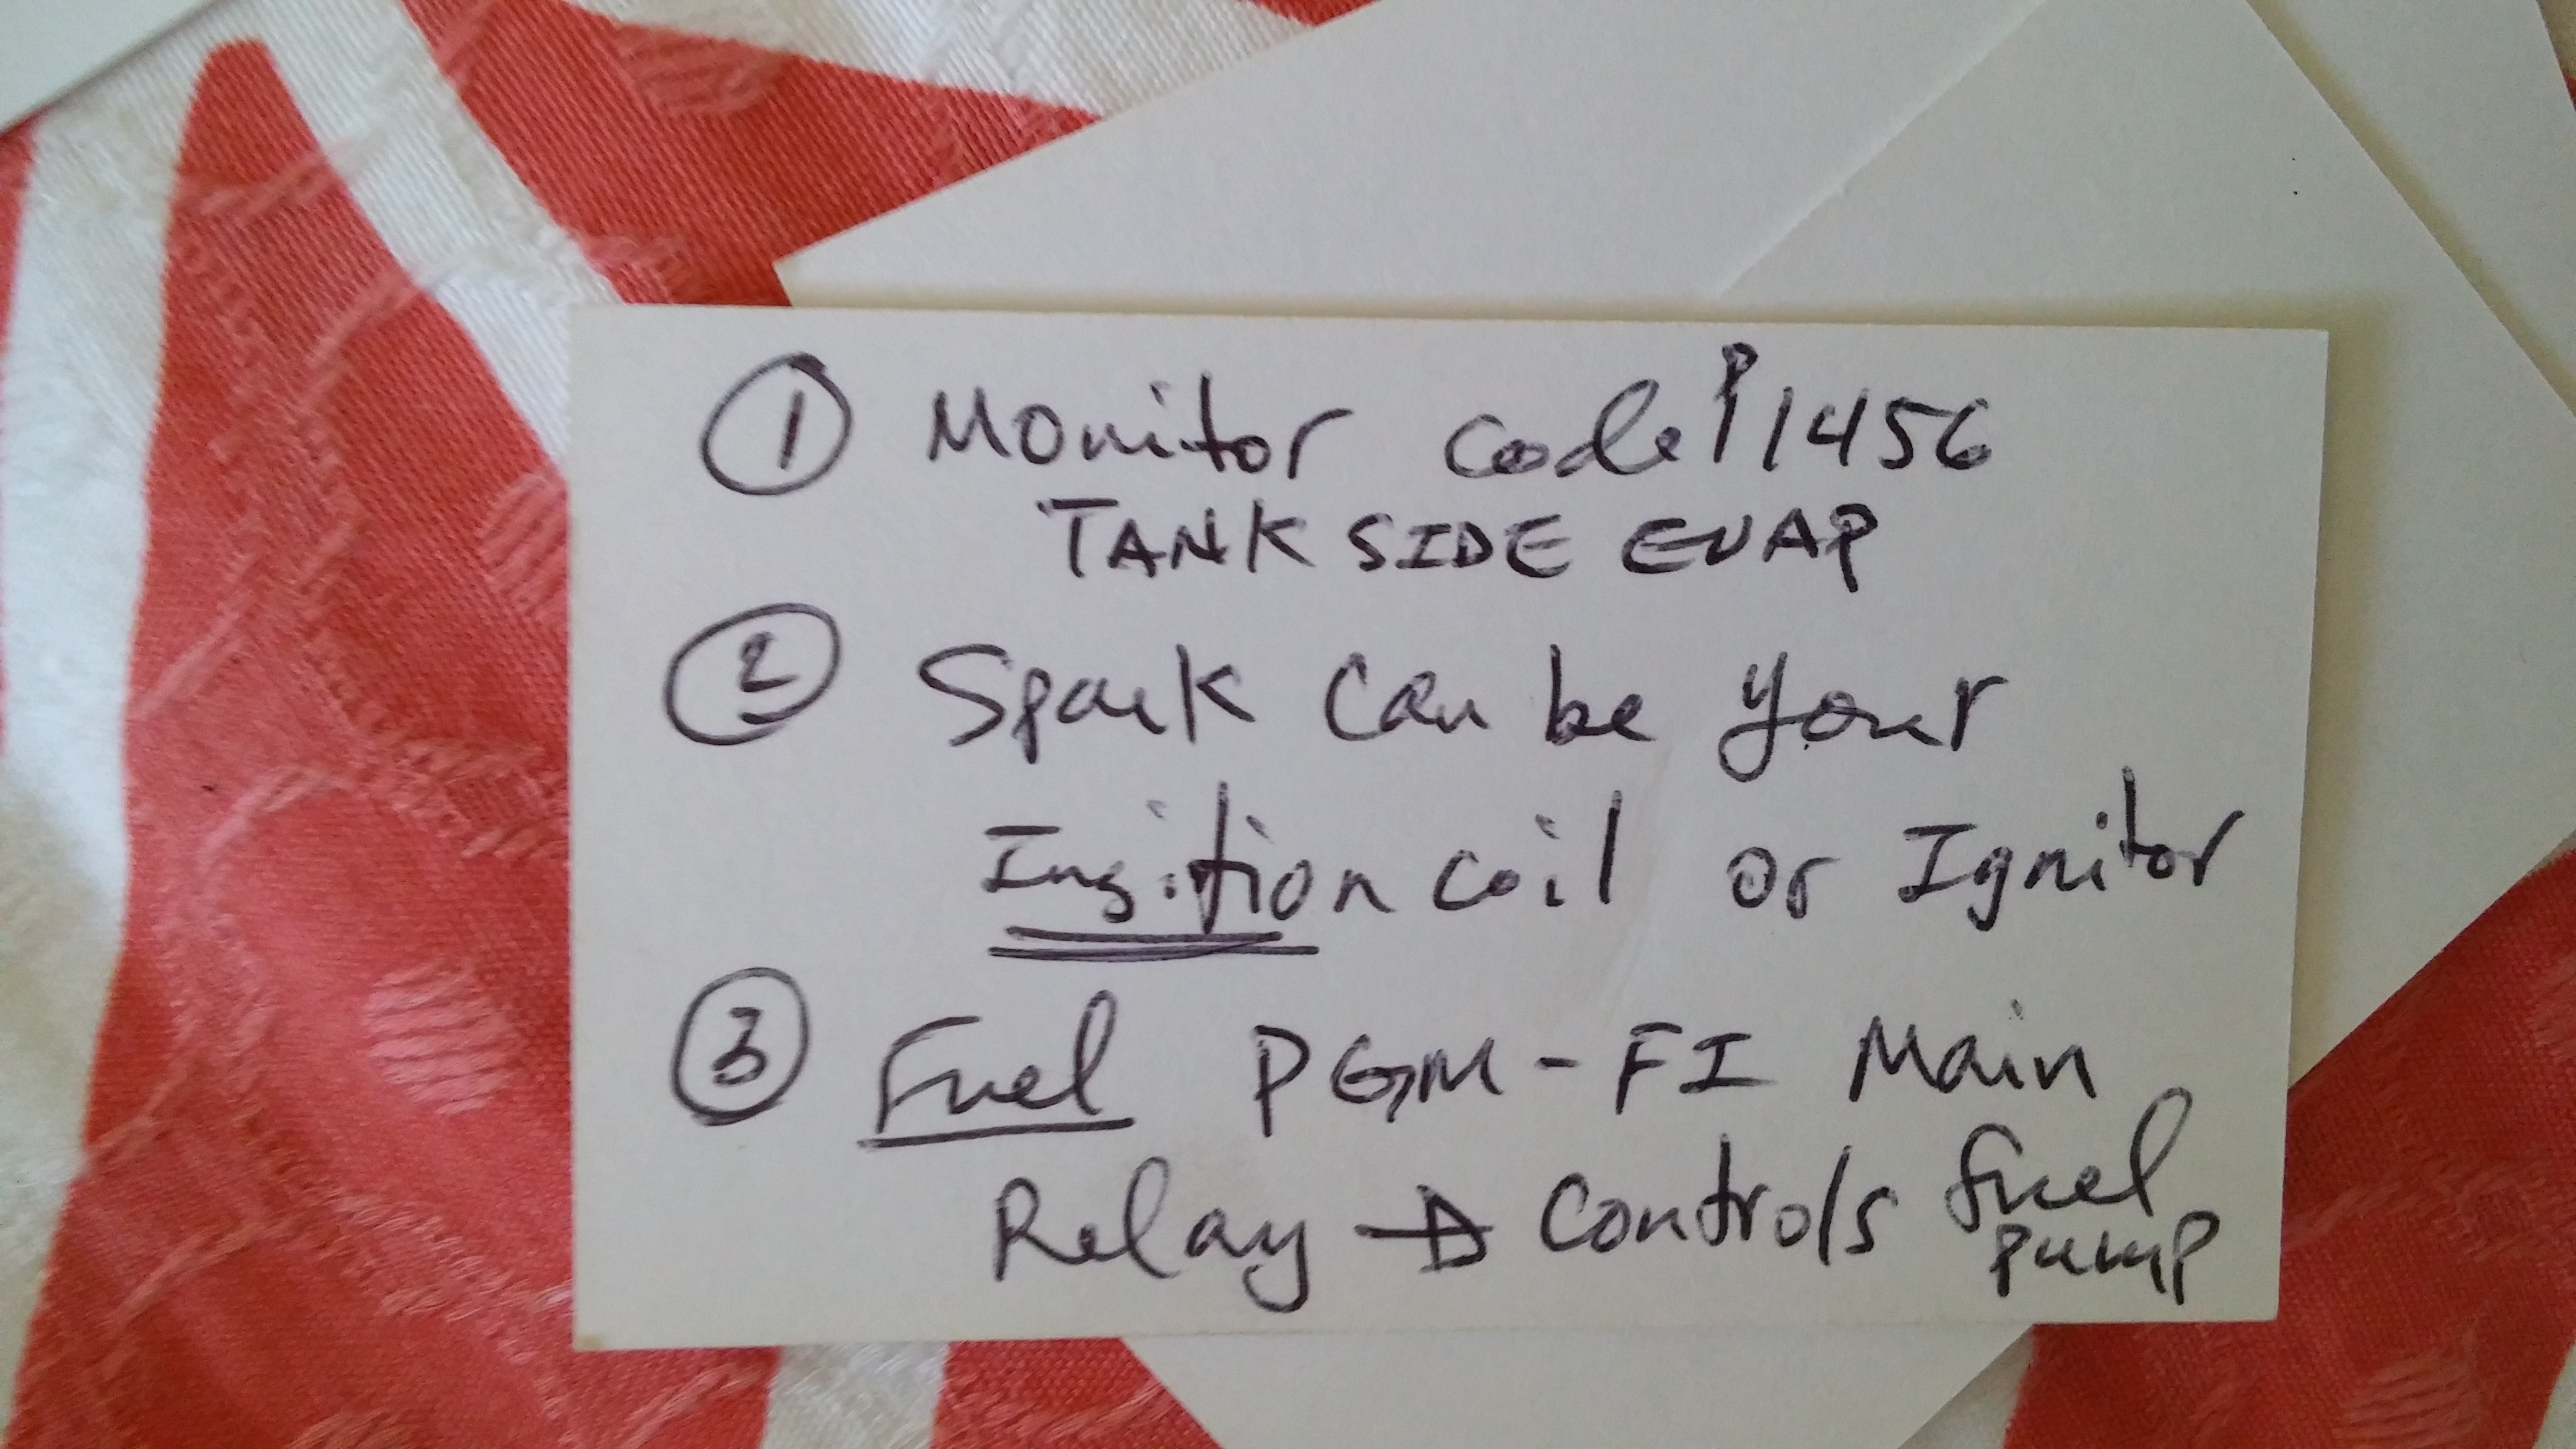 ① Monitor code P1456
TANK SIDE EVAP
② Spark can be your
Ingition coil or Ignitor
③ Fuel PGM-FI Main
Relay → Controls fuel
pump